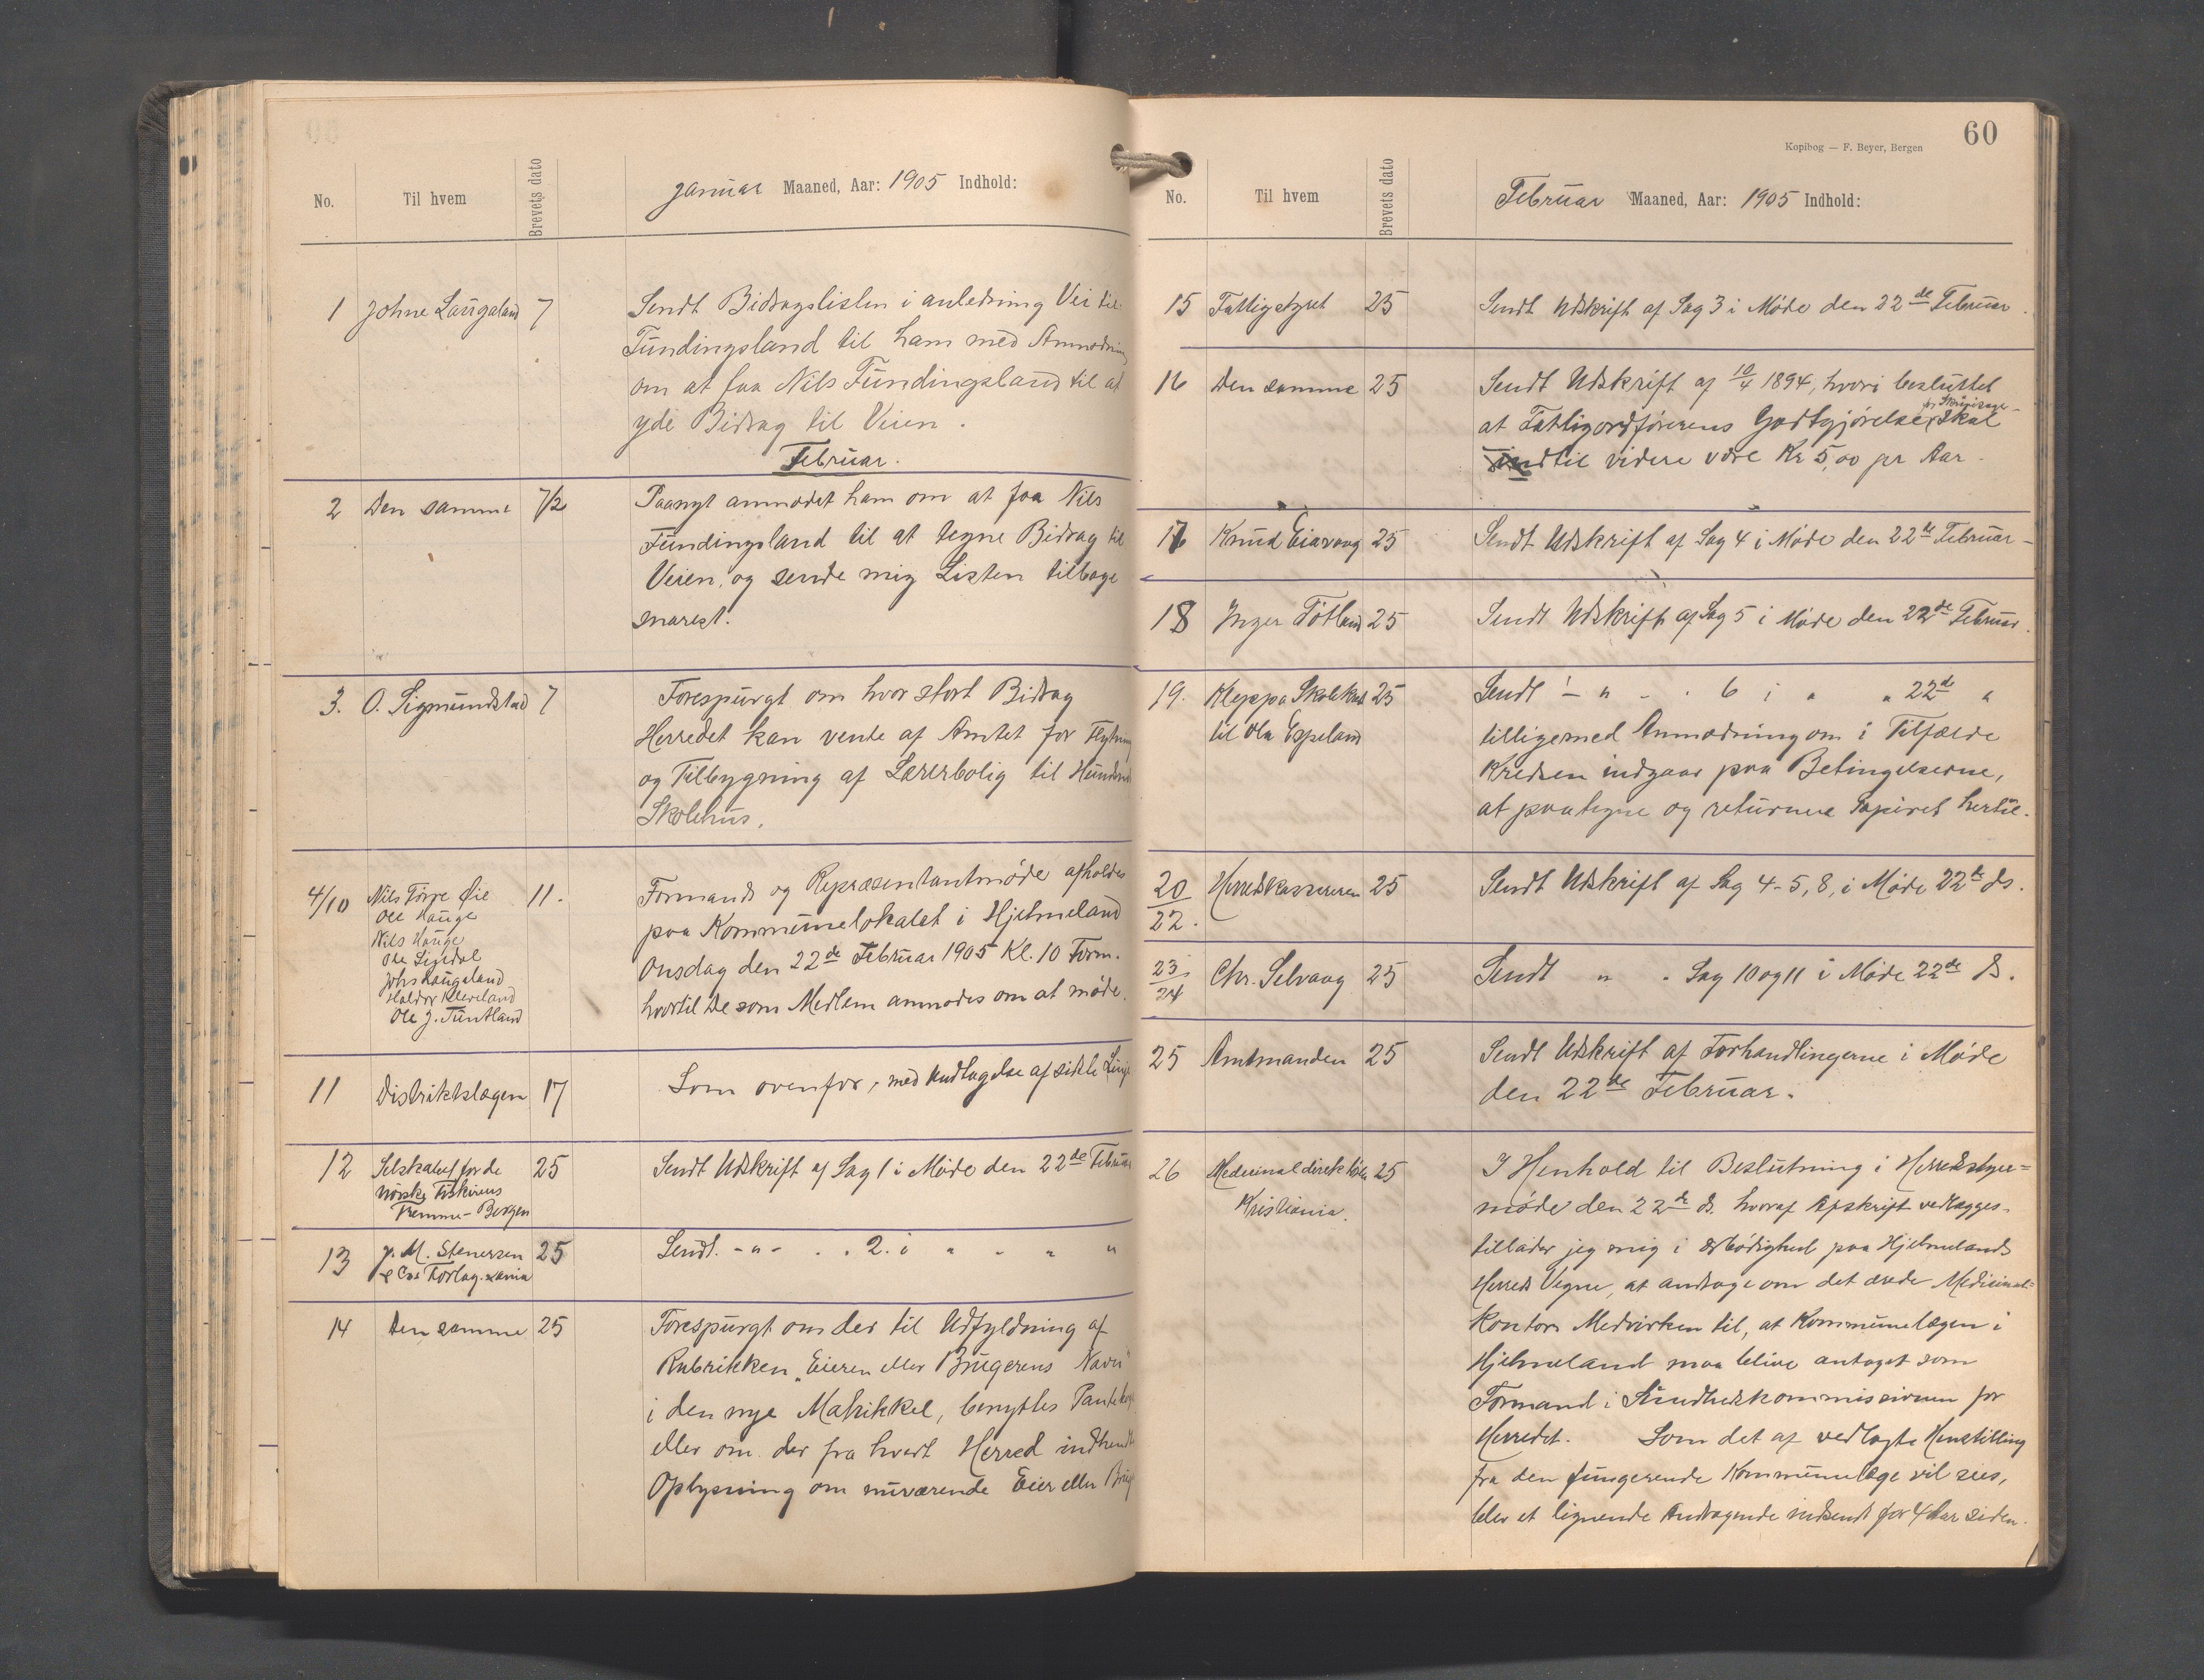 No. Til hvem Brevets dato Januar Maaned, Aar: 1905 Indhold:
1 Johne Laugaland 7 Sendt Bidragslisten i anledning Vei til
Fundingsland til ham med Anmodning
om at faa Nils Fundingsland til at
yde Bidrag til Veien.
Februar.
2 Den samme 7/2 Paanyt anmodet ham om at faa Nils
Fundingsland til at tegne Bidrag til
Veien, og sende mig Listen tilbage
snarest.
3. O. Sigmundstad 7 Forespurgt om hvor stort Bidrag
Herredet kan vente af Amtet for Flytning
og Tilbygning af Lærerbolig til
Skolehus.
4/10 Nils Tørre Øie 11. Formands og Repræsentantmøde afholdes
Ole Hauge
Nils Hauge
paa Kommunelokalet i Hjelmeland
Ole Sigdal
Onsdag den 22de Februar 1905 Kl. 10 Form.
Johs Laugaland
Haldor Kleveland
hvortil De som Medlem anmodes om at møde.
Ole J. Tuntland
11 Distriktslægen 17 Som ovenfor, med Undtagelse af sidste Linje
12 Selskabet for de 25 Sendt Udskrift af Sag 1 i Møde den 22de Februar
norske Fiskeriers
Fremme - Bergen
13 J. M. Stenersen 25 Sendt. - " - . . 2. i " - " "
& Cos Forlag. Xania
14 Den samme 25 Forespurgt om der til Udfyldning af
Rubrikken "Eieren eller Brugerens Navn"
i den nye Matrikkel, benyttes
eller om der fra hvert Herred
Oplysning om nuværende Eier eller
60
Kopibog — F. Beyer, Bergen
No. Til hvem Brevets dato Februar Maaned, Aar: 1905 Indhold:
15 Fattigstyret 25 Sendt Udskrift af Sag 3 i Møde den 22de Februar.
16 Den samme 25 Sendt Udskrift af 10/4 1894, hvori besluttet
at Fattigordførerens Godtgjørelse for Skrivesager skal
indtil videre være Kr 5,00 pr Aar.
17 Knud Eiavaag 25 Sendt Udskrift af Sag 4 i Møde den 22de Februar
18 Inger Føtland 25 Sendt Udskrift af Sag 5 i Møde den 22de Februar.
19. Kleppa Skolekreds 25 Sendt - " - . 6 i " " 22de "
til Ola Espeland tilligemed Anmodning om i Tilfælde
Kredsen indgaar paa Betingelserne,
at paategne og returnere Papiret hertil.
20/22. Herredskassereren 25 Sendt Udskrift af Sag 4-5, 8, i Møde 22de ds.
23/24 Chr. Selvaag 25 Sendt " . Sag 10 og 11 i Møde 22de ds.
25 Amtmanden 25 Sendt Udskrift af Forhandlingerne i Møde
den 22de Februar.
26 Medecinaldirektøren 25 I Henhold til Beslutning i Herredsstyre=
Kristiania. møde den 22de ds. hvoraf Afskrift vedlægges,
tillader jeg mig i ærbødighed paa Hjelmelands
Herreds Vegne, at andrage om det ærede Medicinal=
kontors Medvirken til, at Kommunelægen i
Hjelmeland maa blive antaget som
Formand i Sundhedskommissionen for
Herredet. Som det af vedlagte Henstilling
fra den fungerende Kommunelæge vil sees,
blev et lignende Andragende indsendt for 4 Aar siden.